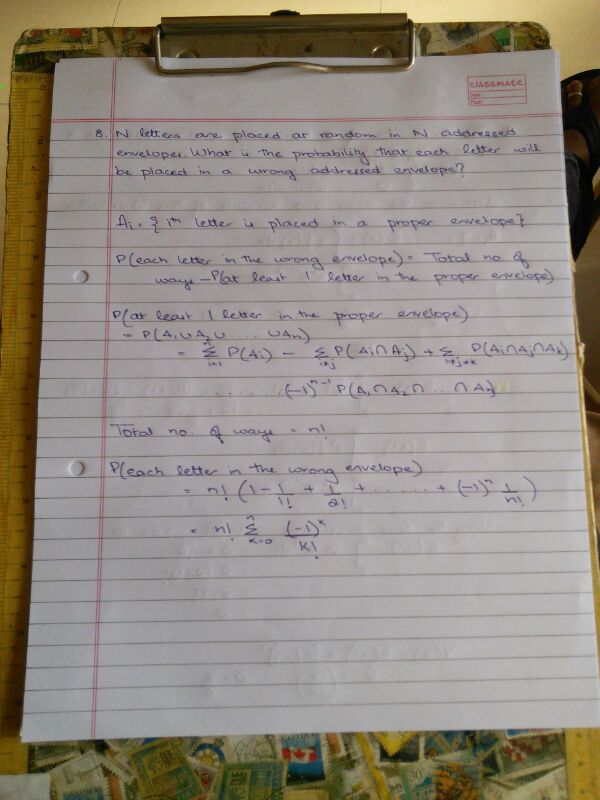 classmate
Date
Page
8. N letters are placed at random in N addressed
envelopes. What is the probability that each letter will
be placed in a wrong addressed envelope?
Ai = { ith letter is placed in a proper envelope}
P(each letter in the wrong envelope) = Total no. of
ways - P(at least 1 letter in the proper envelope)
P(at least 1 letter in the proper envelope)
= P(A1 ∪ A2 ∪ ... ∪ An)
= n Σ i=1 P(Ai) - Σ i≠j P(Ai ∩ Aj) + Σ i≠j≠k P(Ai ∩ Aj ∩ Ak)
....... (-1)^n-1 P(A1 ∩ A2 ∩ .. ∩ An)
Total no. of ways = n!
P(each letter in the wrong envelope)
= n! (1 - 1/1! + 1/2! + ...... + (-1)^n 1/n!)
= n! n Σ k=0 (-1)^k/k!